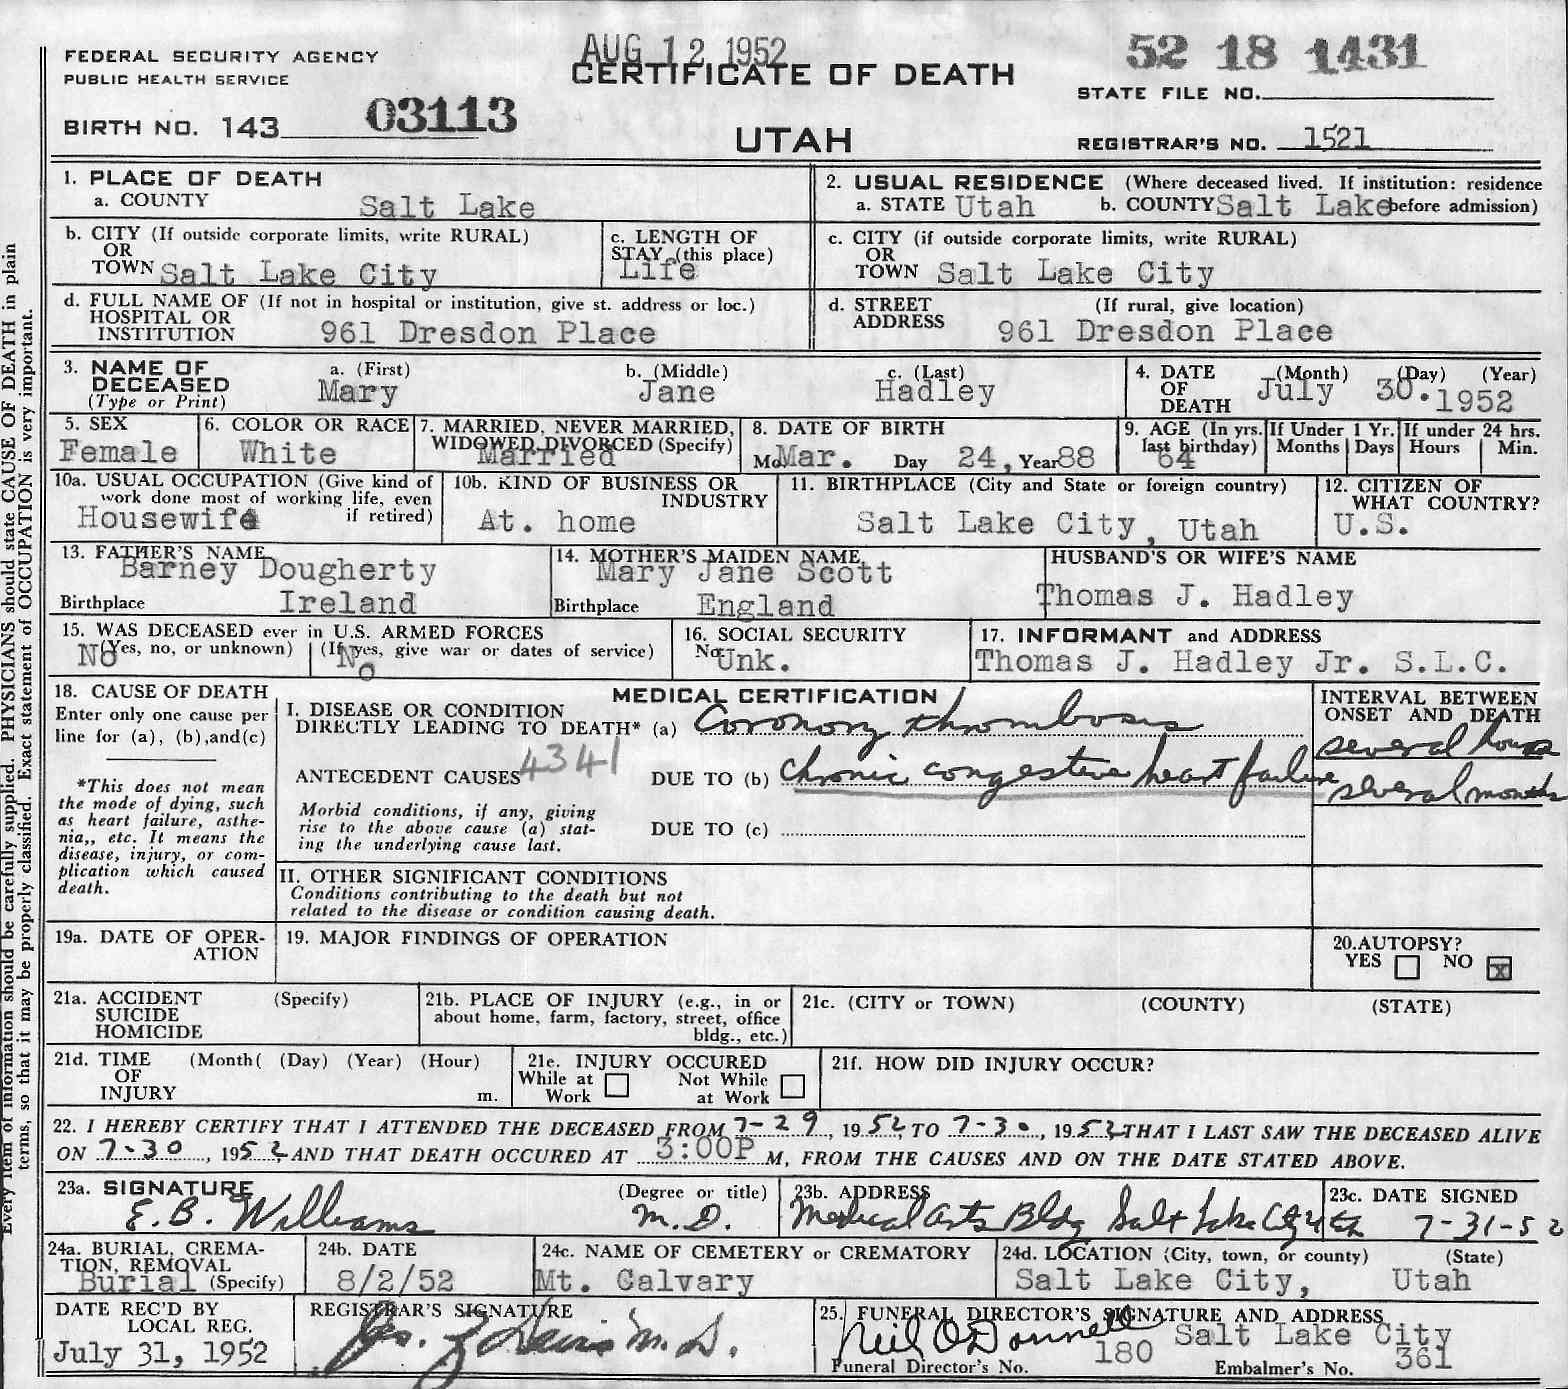 AUG 12 1952
52 18 1431
FEDERAL SECURITY AGENCY
PUBLIC HEALTH SERVICE
CERTIFICATE OF DEATH
STATE FILE NO.
BIRTH NO. 143 03113
UTAH
REGISTRAR'S NO. 1521
1. PLACE OF DEATH
a. COUNTY Salt Lake
2. USUAL RESIDENCE (Where deceased lived. If institution: residence before admission)
a. STATE Utah b. COUNTY Salt Lake
b. CITY (If outside corporate limits, write RURAL)
OR
TOWN Salt Lake City
c. LENGTH OF
STAY (this place)
Life
c. CITY (if outside corporate limits, write RURAL)
OR
TOWN Salt Lake City
d. FULL NAME OF (If not in hospital or institution, give st. address or loc.)
HOSPITAL OR
INSTITUTION 961 Dresdon Place
d. STREET (If rural, give location)
ADDRESS 961 Dresdon Place
3. NAME OF
DECEASED
(Type or Print)
a. (First)
Mary
b. (Middle)
Jane
c. (Last)
Hadley
4. DATE
OF
DEATH
(Month) (Day) (Year)
July 30. 1952
5. SEX
Female
6. COLOR OR RACE
White
7. MARRIED, NEVER MARRIED,
WIDOWED, DIVORCED (Specify)
Married
8. DATE OF BIRTH
Mo. Mar. Day 24, Year 88
9. AGE (In yrs.
last birthday)
64
If Under 1 Yr.
Months Days
If under 24 hrs.
Hours Min.
10a. USUAL OCCUPATION (Give kind of
work done most of working life, even
if retired)
Housewife
10b. KIND OF BUSINESS OR
INDUSTRY
At. home
11. BIRTHPLACE (City and State or foreign country)
Salt Lake City, Utah
12. CITIZEN OF
WHAT COUNTRY?
U.S.
13. FATHER'S NAME
Barney Dougherty
Birthplace Ireland
14. MOTHER'S MAIDEN NAME
Mary Jane Scott
Birthplace England
HUSBAND'S OR WIFE'S NAME
Thomas J. Hadley
15. WAS DECEASED ever in U.S. ARMED FORCES
(Yes, no, or unknown) (If yes, give war or dates of service)
No No
16. SOCIAL SECURITY
No. Unk.
17. INFORMANT and ADDRESS
Thomas J. Hadley Jr. S.L.C.
18. CAUSE OF DEATH
Enter only one cause per
line for (a), (b), and(c)
*This does not mean
the mode of dying, such
as heart failure, asthe-
nia,, etc. It means the
disease, injury, or com-
plication which caused
death.
MEDICAL CERTIFICATION
I. DISEASE OR CONDITION
DIRECTLY LEADING TO DEATH* (a) Coronory thrombosis
ANTECEDENT CAUSES 4341 DUE TO (b) chronic congestive heart failure
Morbid conditions, if any, giving
rise to the above cause (a) stat-
ing the underlying cause last.
DUE TO (c)
INTERVAL BETWEEN
ONSET AND DEATH
several hours
several months
II. OTHER SIGNIFICANT CONDITIONS
Conditions contributing to the death but not
related to the disease or condition causing death.
19a. DATE OF OPER-
ATION
19. MAJOR FINDINGS OF OPERATION
20. AUTOPSY?
YES NO X
21a. ACCIDENT (Specify)
SUICIDE
HOMICIDE
21b. PLACE OF INJURY (e.g., in or
about home, farm, factory, street, office
bldg., etc.)
21c. (CITY or TOWN) (COUNTY) (STATE)
21d. TIME (Month( (Day) (Year) (Hour)
OF
INJURY m.
21e. INJURY OCCURED
While at Work Not While at Work
21f. HOW DID INJURY OCCUR?
22. I HEREBY CERTIFY THAT I ATTENDED THE DECEASED FROM 7-29, 1952, TO 7-30, 1952 THAT I LAST SAW THE DECEASED ALIVE
ON 7-30, 1952, AND THAT DEATH OCCURED AT 3:00P M, FROM THE CAUSES AND ON THE DATE STATED ABOVE.
23a. SIGNATURE (Degree or title)
E.B. Williams M.D.
23b. ADDRESS
Medical Arts Bldg Salt Lake City Utah
23c. DATE SIGNED
7-31-52
24a. BURIAL, CREMA-
TION, REMOVAL
Burial (Specify)
24b. DATE
8/2/52
24c. NAME OF CEMETERY or CREMATORY
Mt. Calvary
24d. LOCATION (City, town, or county) (State)
Salt Lake City, Utah
DATE REC'D BY
LOCAL REG.
July 31, 1952
REGISTRAR'S SIGNATURE
M.D.
25. FUNERAL DIRECTOR'S SIGNATURE AND ADDRESS
Neil O'Donnell Salt Lake City
Funeral Director's No. 180 Embalmer's No. 361
Every item of information should be carefully supplied. PHYSICIANS should state CAUSE OF DEATH in plain
terms, so that it may be properly classified. Exact statement of OCCUPATION is very important.